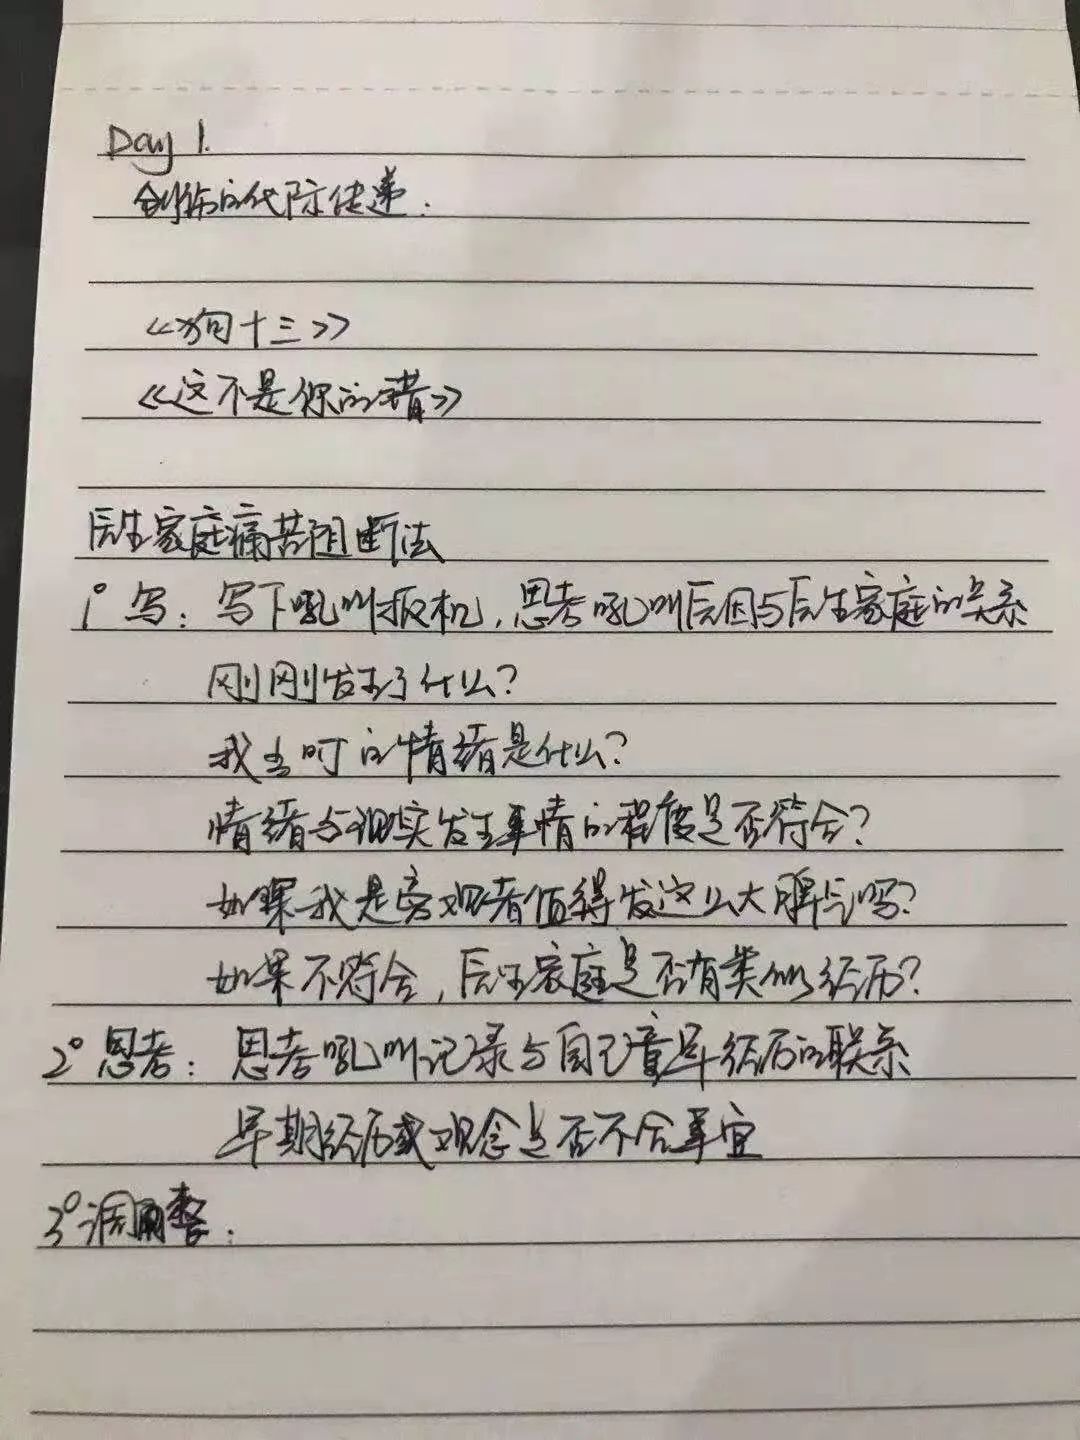 Day 1.
创伤的代际传递：
《狗十三》
《这不是你的错》
原生家庭痛苦阻断法
1° 写：写下吼叫扳机，思考吼叫原因与原生家庭的关系
刚刚发生了什么？
我当时的情绪是什么？
情绪与现实发生事情的程度是否符合？
如果我是旁观者值得发这么大脾气吗？
如果不符合，原生家庭是否有类似经历？
2° 思考：思考吼叫记录与自己童年经历的联系
早期经历或观念是否不合事宜
3° 调整：